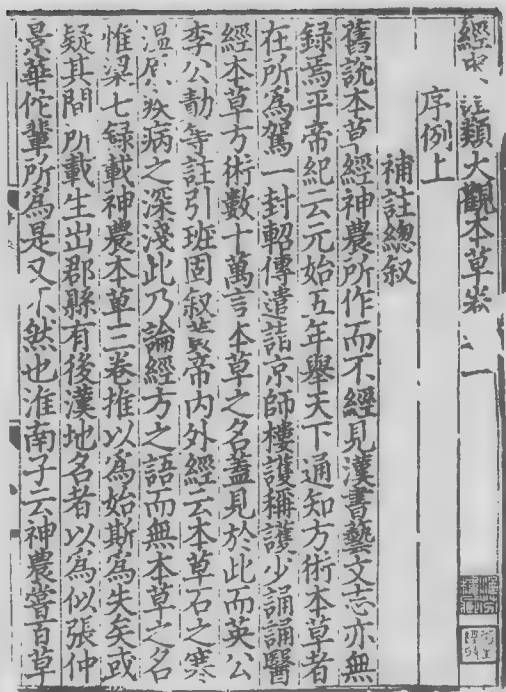 經史證類大觀本草卷之一
序例上
補註總叙
舊說本草經神農所作而不經見漢書藝文志亦無
録焉平帝紀云元始五年舉天下通知方術本草者
在所爲駕一封軺傳遣詣京師樓護稱護少誦誦醫
經本草方術數十萬言本草之名蓋見於此而英公
李公勣等註引班固叙黄帝内外經云本草石之寒
温原疾病之深淺此乃論經方之語而無本草之名
惟梁七録載神農本草三卷推以爲始斯爲失矣或
疑其間所載生出郡縣有後漢地名者以爲似張仲
景華佗輩所爲是又不然也淮南子云神農甞百草